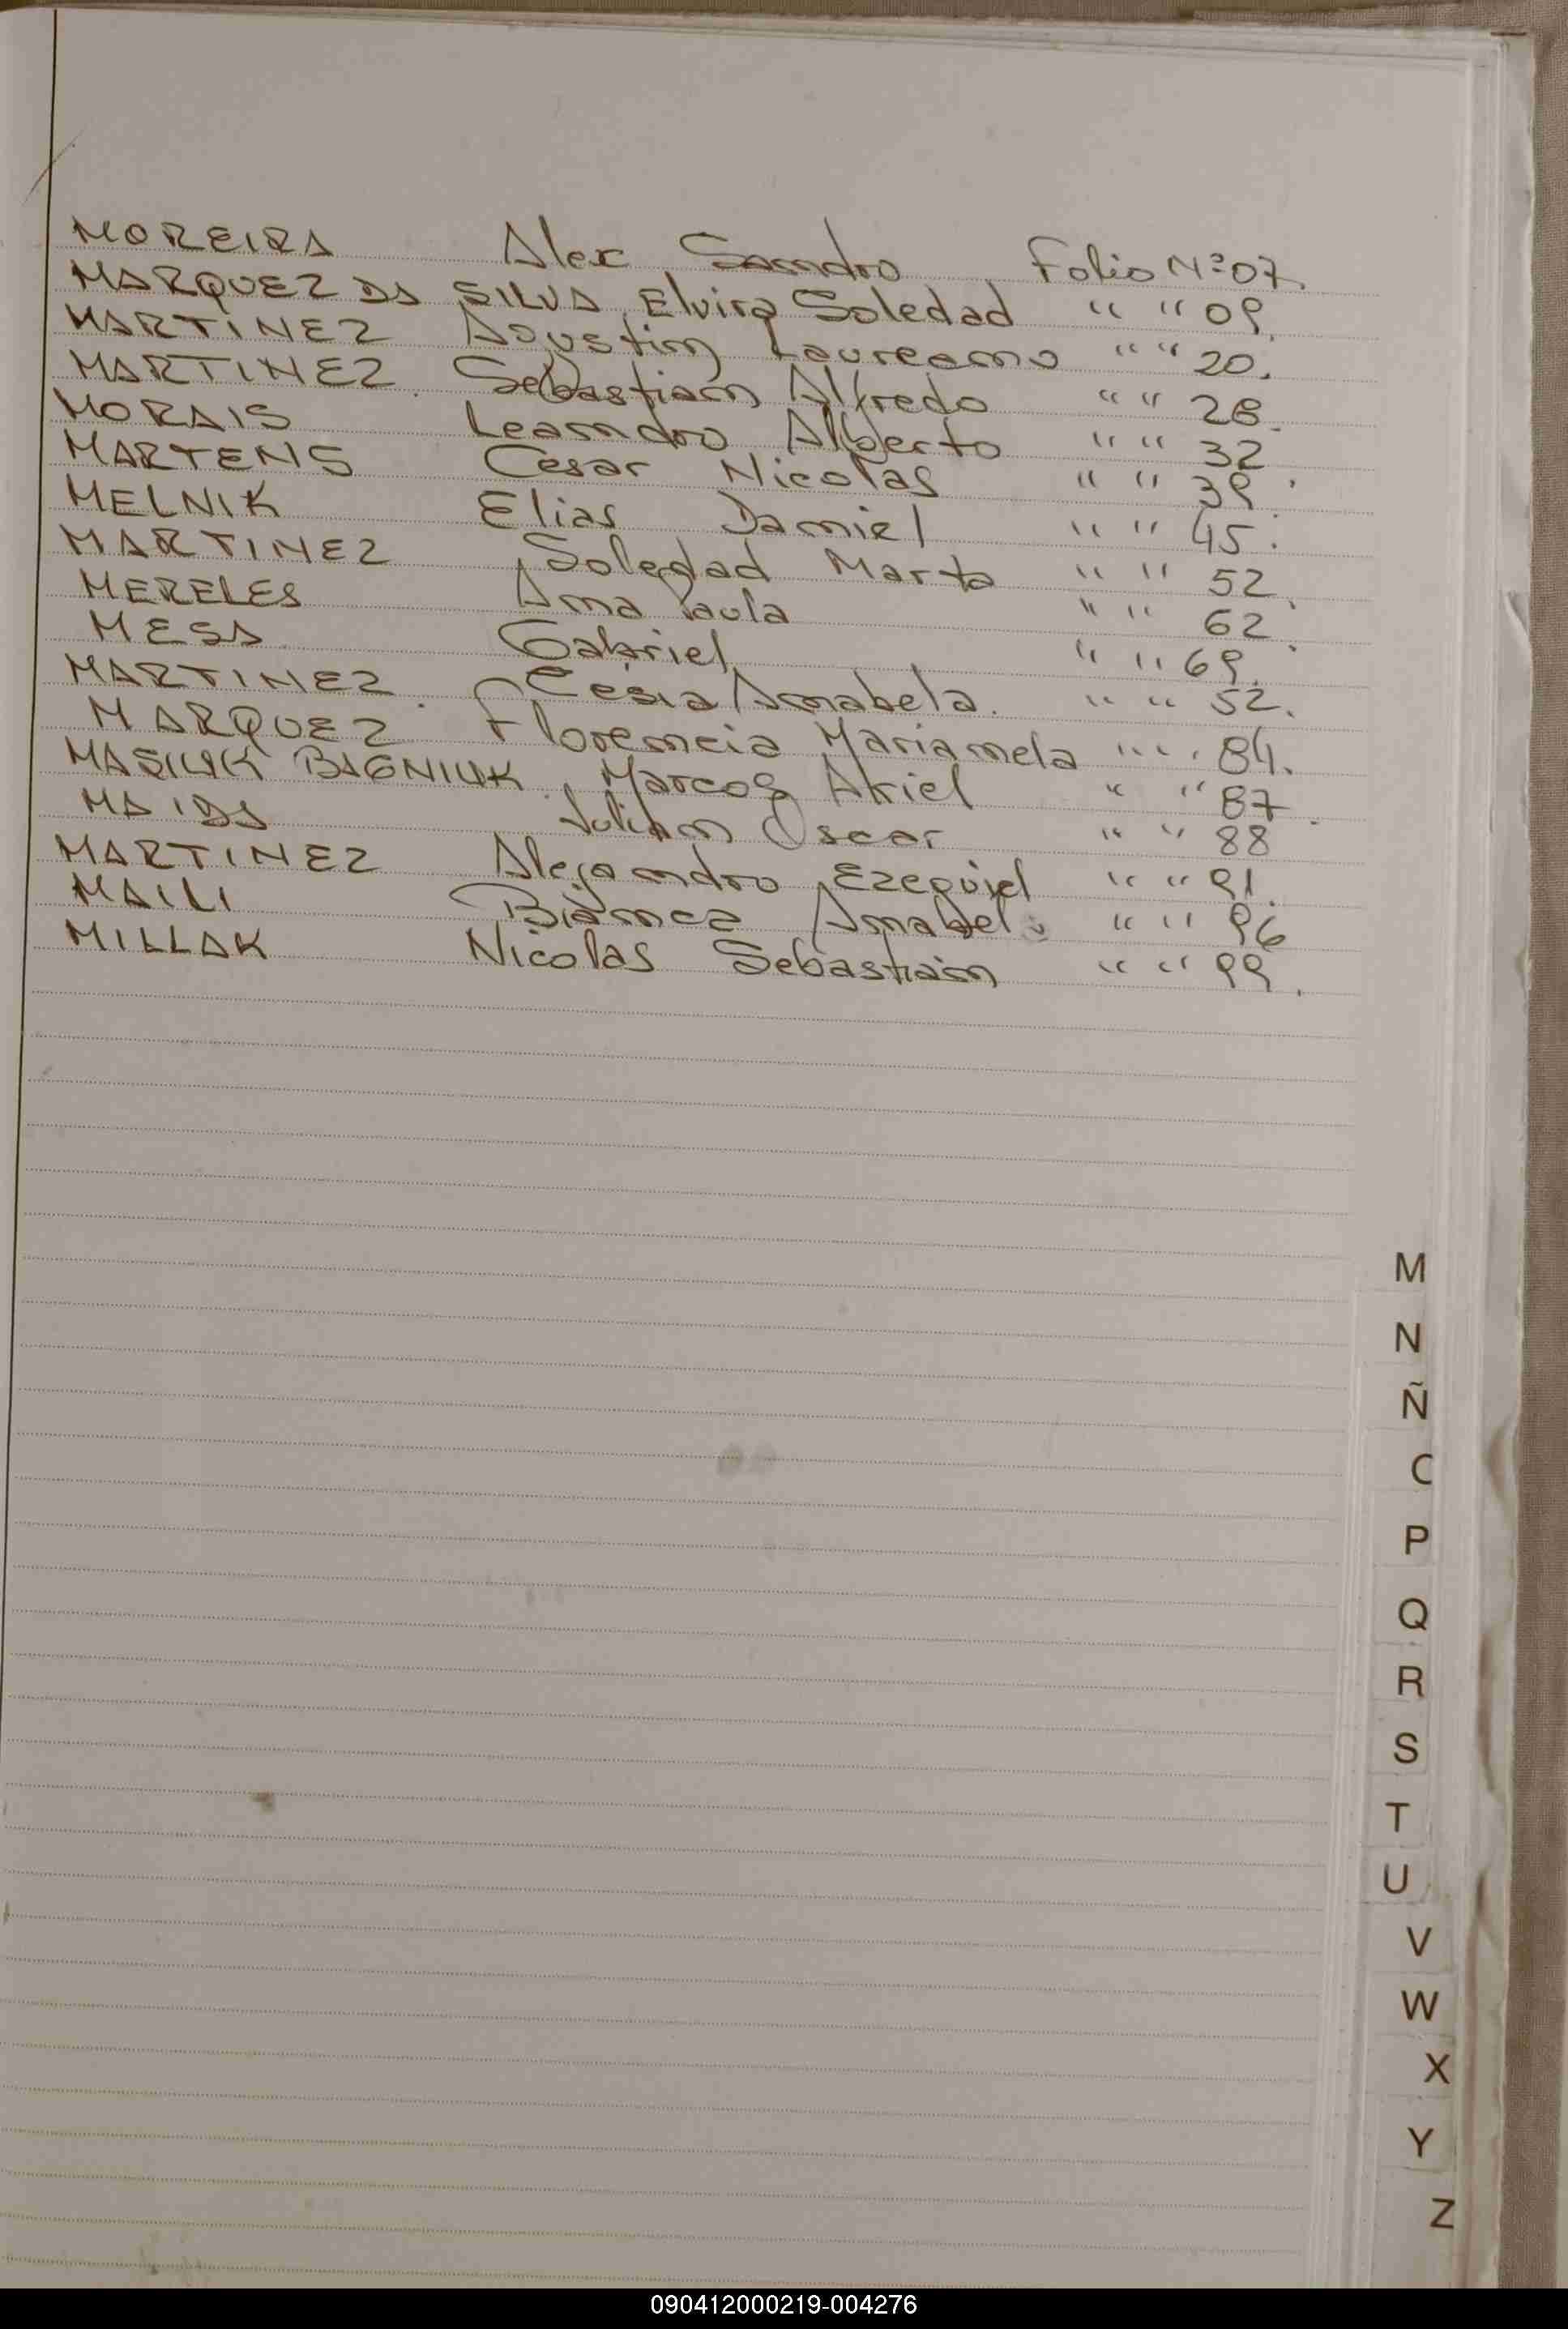 MOREIRA Alex Sandro Folio Nº 07.
MARQUEZ DA SILVA, Elvira Soledad " " 09.
MARTINEZ Agustin Laureano " " 20.
MARTINEZ. Sebastian Alfredo " " 28.
MORAIS Leandro Alberto " " 32
MARTENS Cesar Nicolas " " 39.
MELNIK Elias Daniel " " 45.
MARTINEZ Soledad Marta " " 52.
MERELES Ana Paula " " 62.
MESA Gabriel " " 69.
MARTINEZ. Cesia Anabela. " " 52.
MARQUEZ Florencia Marianela " " 84.
MASIUK BAGNIUK. Marcos Ariel " " 87.
MAIDA Julian Oscar " " 88
MARTINEZ Alejandro Ezequiel " " 91.
MAILI Bianca Anabel. " " 96
MILLAK Nicolas Sebastian " " 99.
M
N
Ñ
O
P
Q
R
S
T
U
V
W
X
Y
Z
090412000219-004276